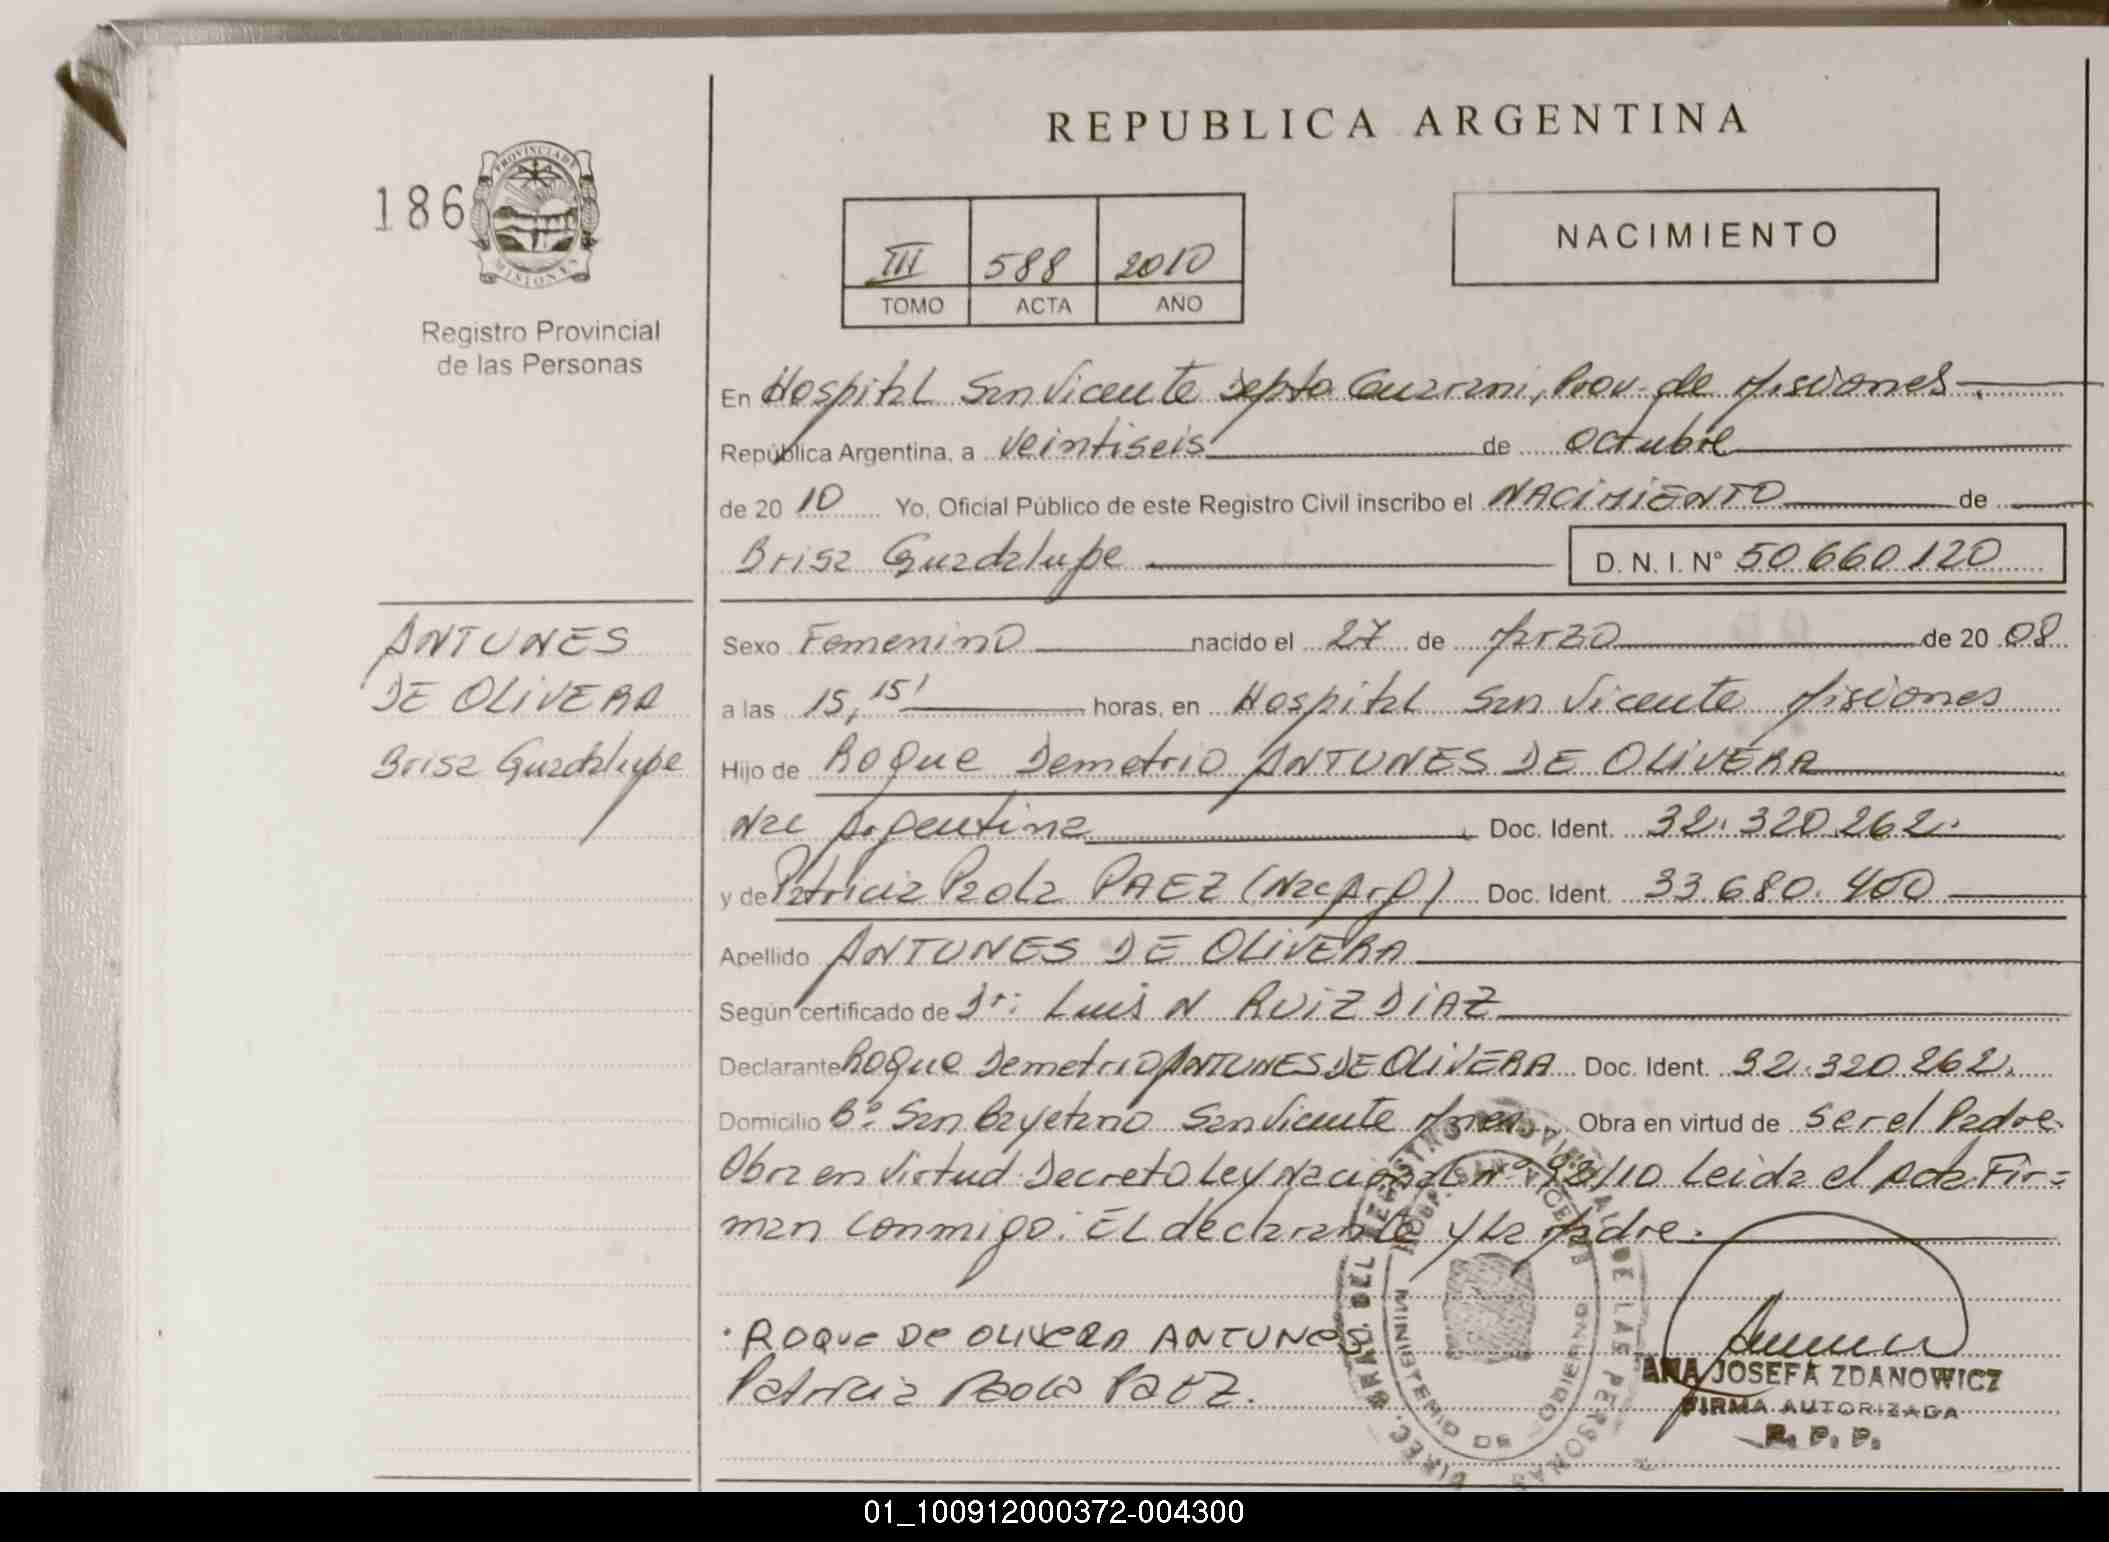 REPUBLICA ARGENTINA
186
PROVINCIA DE
MISIONES
Registro Provincial
de las Personas
III 588 2010
TOMO ACTA AÑO
NACIMIENTO
En Hospital San Vicente Depto Guarani, Prov. de Misiones
República Argentina, a veintiseis de octubre
de 20 10 Yo, Oficial Público de este Registro Civil inscribo el NACIMIENTO de
Brisa Guadalupe D. N. I. N° 50.660.120
ANTUNES
DE OLIVERA
Brisa Guadalupe
Sexo Femenino nacido el 27 de Marzo de 20 08
a las 15,15' horas, en Hospital San Vicente Misiones
Hijo de Roque Demetrio ANTUNES DE OLIVERA
Nac Argentina Doc. Ident. 32.320.262.
y de Patricia Paola PAEZ (Nac Arg) Doc. Ident. 33.680.400
Apellido ANTUNES DE OLIVERA
Según certificado de Dr: Luis N RUIZ DIAZ
Declarante Roque Demetrio ANTUNES DE OLIVERA Doc. Ident. 32.320.262.
Domicilio B° San Cayetano San Vicente Mnes. Obra en virtud de ser el Padre.
Obra en Virtud Decreto Ley Nacional n° 93/10 Leida el Acta Fir=
man conmigo: El declarante y la Madre.
ROQUE DE OLIVERA ANTUNES
Patricia Paola Paez.
DIREC. GRAL. DEL REGISTRO PROVINCIAL DE LAS PERSONAS
HOSP. SAN VICENTE
MINISTERIO DE GOBIERNO
ANA JOSEFA ZDANOWICZ
FIRMA AUTORIZADA
R. P. P.
01_100912000372-004300